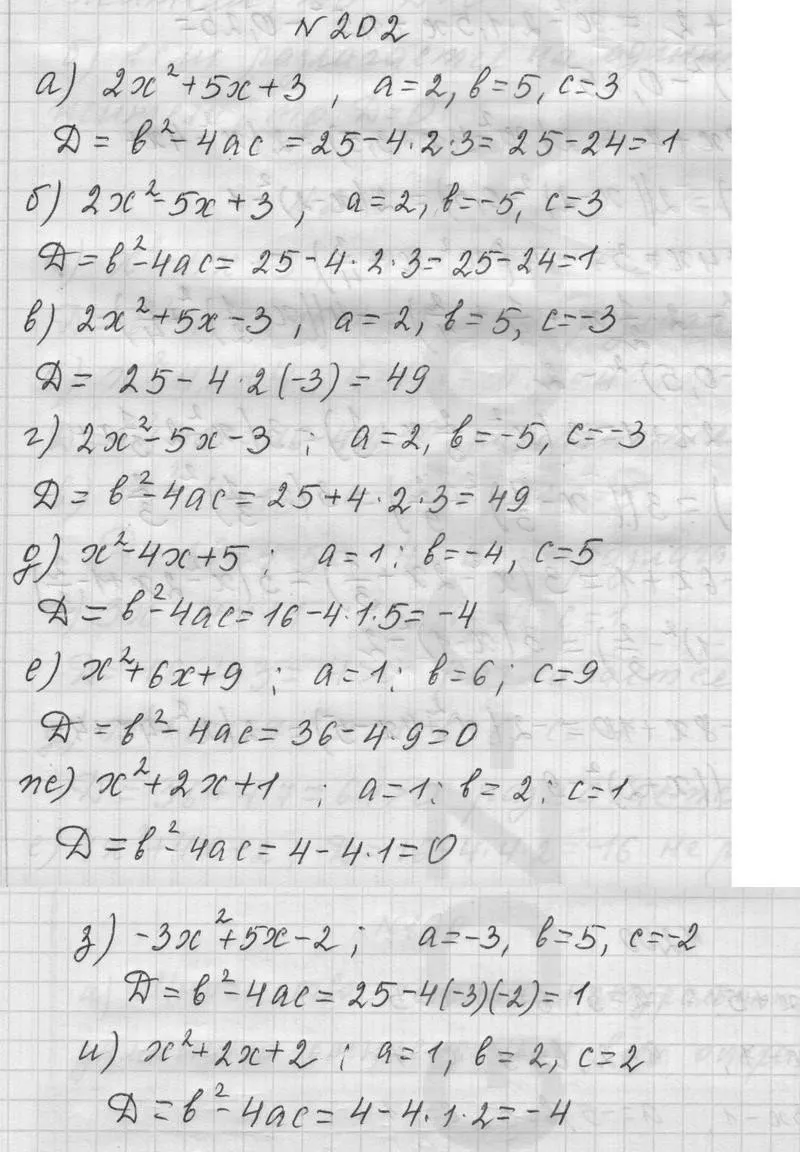 N 202
а) 2x² + 5x + 3 , a = 2, b = 5, c = 3
Д = b² - 4ac = 25 - 4·2·3 = 25 - 24 = 1
б) 2x² - 5x + 3 , a = 2, b = -5, c = 3
Д = b² - 4ac = 25 - 4·2·3 = 25 - 24 = 1
в) 2x² + 5x - 3 , a = 2, b = 5, c = -3
Д = 25 - 4·2(-3) = 49
г) 2x² - 5x - 3 ; a = 2, b = -5, c = -3
Д = b² - 4ac = 25 + 4·2·3 = 49
д) x² - 4x + 5 ; a = 1 ; b = -4, c = 5
Д = b² - 4ac = 16 - 4·1·5 = -4
е) x² + 6x + 9 ; a = 1 ; b = 6 ; c = 9
Д = b² - 4ac = 36 - 4·9 = 0
ж) x² + 2x + 1 ; a = 1 ; b = 2 ; c = 1
Д = b² - 4ac = 4 - 4·1 = 0
з) -3x² + 5x - 2 ; a = -3, b = 5, c = -2
Д = b² - 4ac = 25 - 4(-3)(-2) = 1
и) x² + 2x + 2 ; a = 1, b = 2, c = 2
Д = b² - 4ac = 4 - 4·1·2 = -4